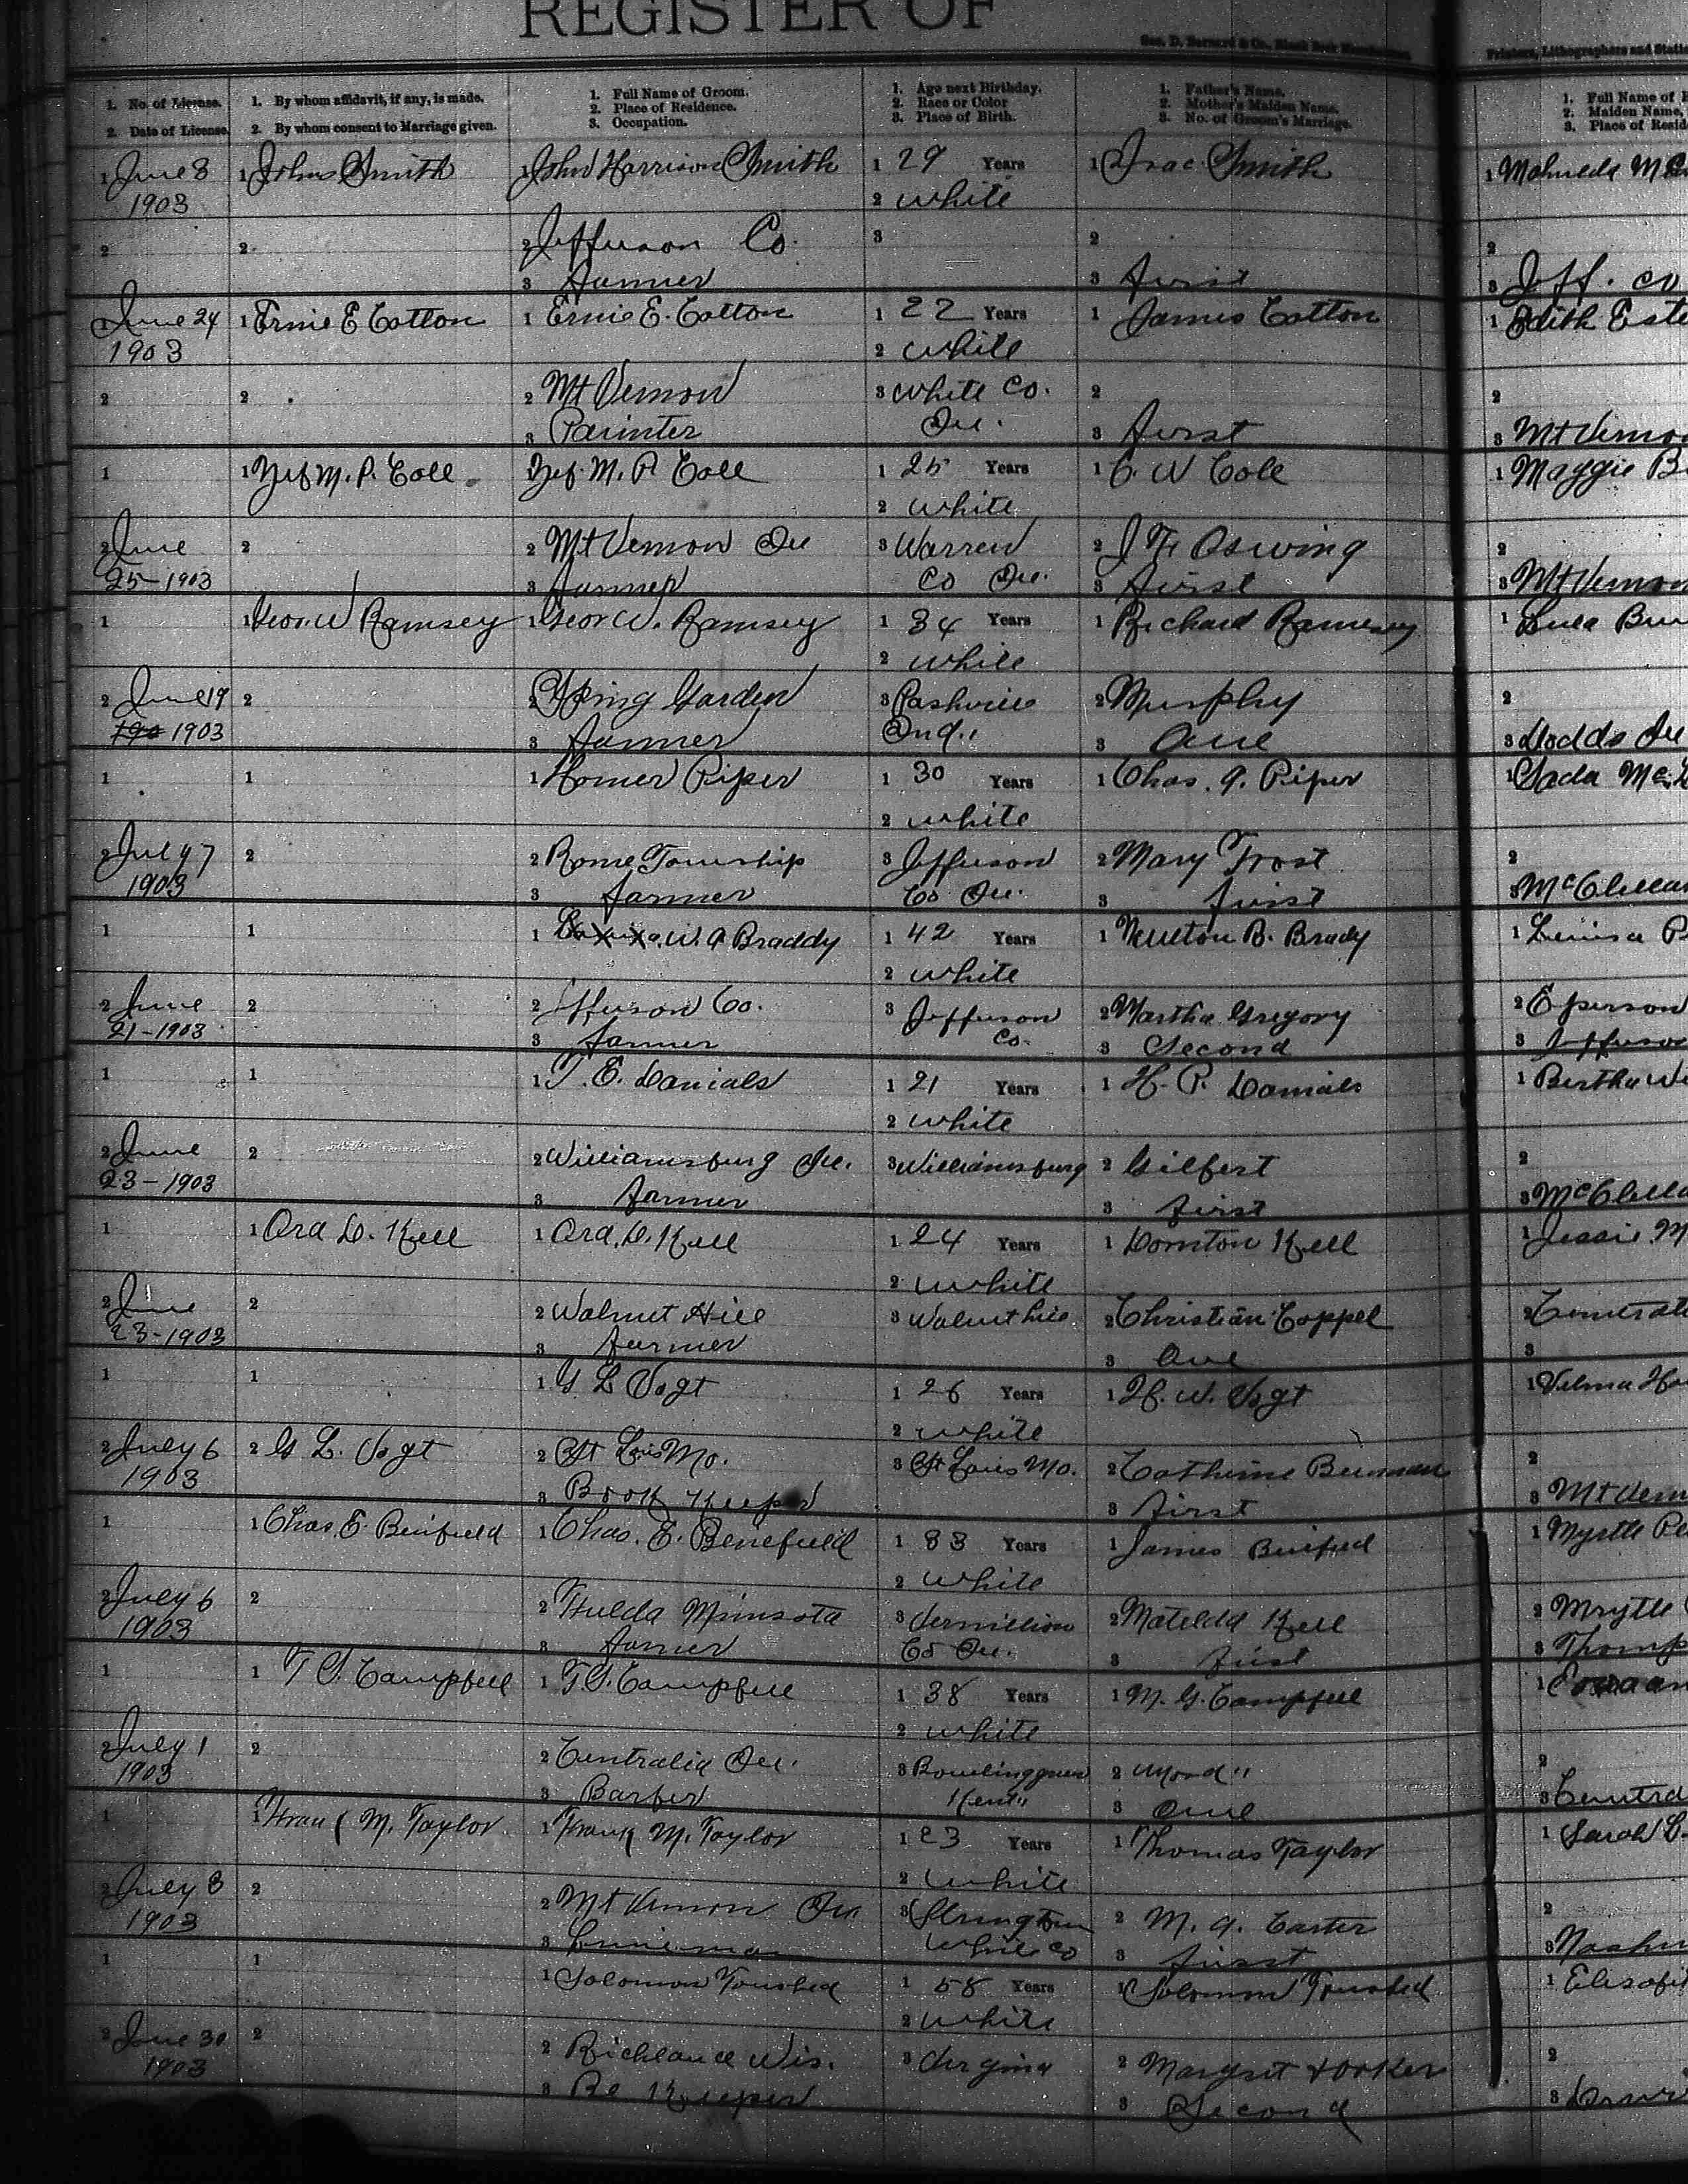 REGISTER OF
Geo. D. Barnard & Co., Blank Book Manufacturers,
Printers, Lithographers and Statio
1. No. of License.
2. Date of License.
1. By whom affidavit, if any, is made.
2. By whom consent to Marriage given.
1. Full Name of Groom.
2. Place of Residence.
3. Occupation.
1. Age next Birthday.
2. Race or Color
3. Place of Birth.
1. Father's Name.
2. Mother's Maiden Name.
3. No. of Groom's Marriage.
1. Full Name of
2. Maiden Name,
3. Place of Resid
1 June 8 1 John Smith 1 John Harrison Smith 1 29 Years 1 Smith 1
1903 2 White
2 2 2 Jefferson Co. 3 2 2
3 Farmer 3 First 3 Jeff. Co
1 June 24 1 Ernie E Cotton 1 Ernie E. Cotton 1 22 Years 1 James Cotton 1 Edith Este
1903 2 White
2 2 2 Mt Vernon 3 White Co. 2 2
3 Painter Ill. 3 First 3 Mt Vernon
1 1 Zef M. P. Cole 1 Zef. M. P. Cole 1 25 Years 1 C. W Cole 1 Maggie B
2 White
2 June 2 2 Mt Vernon Ill 3 Warren 2 2
25-1903 3 Farmer Co Ill. 3 First 3 Mt Vernon
1 1 Geo. W Ramsey 1 Geo. W. Ramsey 1 34 Years 1 Richard Ramsey 1 Lula
2 White
2 June 19 2 2 Spring Garden 3 2 Murphy 2
190 1903 3 Farmer Ind. 3 One 3 Dodds Ill
1 1 1 Homer Piper 1 30 Years 1 Chas. A. Piper 1 Sada Mc
2 White
2 July 7 2 2 Rome Township 3 Jefferson 2 Mary Frost 2
1903 3 Farmer Co Ill. 3 First 3 McClellan
1 1 1 W. A Braddy 1 42 Years 1 Newton B. Brady 1
2 White
2 June 2 2 Jefferson Co. 3 Jefferson 2 Martha Gregory 2 Eperson
21-1903 3 Farmer Co. 3 Second 3 Jefferson
1 1 1 T. E. Danials 1 21 Years 1 H. P. Danials 1 Bertha
2 White
2 June 2 2 Williamsburg Ill. 3 Williamsburg 2 Gilbert 2
23-1903 3 Farmer 3 First 3 McClella
1 1 Ora D. Kell 1 Ora. D. Kell 1 24 Years 1 Kell 1 Jessie M
2 White
2 June 2 2 Walnut Hill 3 Walnut hill 2 Christian Coppel 2
23-1903 3 Farmer 3 One 3
1 1 1 G L Vogt 1 26 Years 1 H. W. Vogt 1 Velma
2 White
2 July 6 2 G L. Vogt 2 St Louis Mo. 3 St Louis Mo. 2 Catherine 2
1903 3 Book Keeper 3 First 3 Mt Vern
1 1 Chas. E. Benifield 1 Chas. E. Benefield 1 33 Years 1 James 1 Myrtle
2 White
2 July 6 2 2 Hulda Minsota 3 Vermillion 2 Matelda Kell 2 Mrytle
1903 3 Farmer Co Ill. 3 First 3 Thomp
1 1 T S. Campbell 1 T. S. Campbell 1 38 Years 1 M. G. Campbell 1
2 White
2 July 1 2 2 Centralia Ill. 3 Bowlinggreen 2 2
1903 3 Barber Kent 3 One 3 Centra
1 1 Frank M. Taylor 1 Frank M. Taylor 1 23 Years 1 Thomas Taylor 1 Sarah
2 White
2 July 8 2 2 Mt Vernon Ill 3 2 M. A. Carter 2
1903 3 Lineman White Co 3 First 3
1 1 1 Solomon 1 58 Years 1 Solomon 1
2 White
2 June 30 2 2 Richland Wis. 3 Virginia 2 Margret 2
1903 3 Be Keeper 3 Second 3